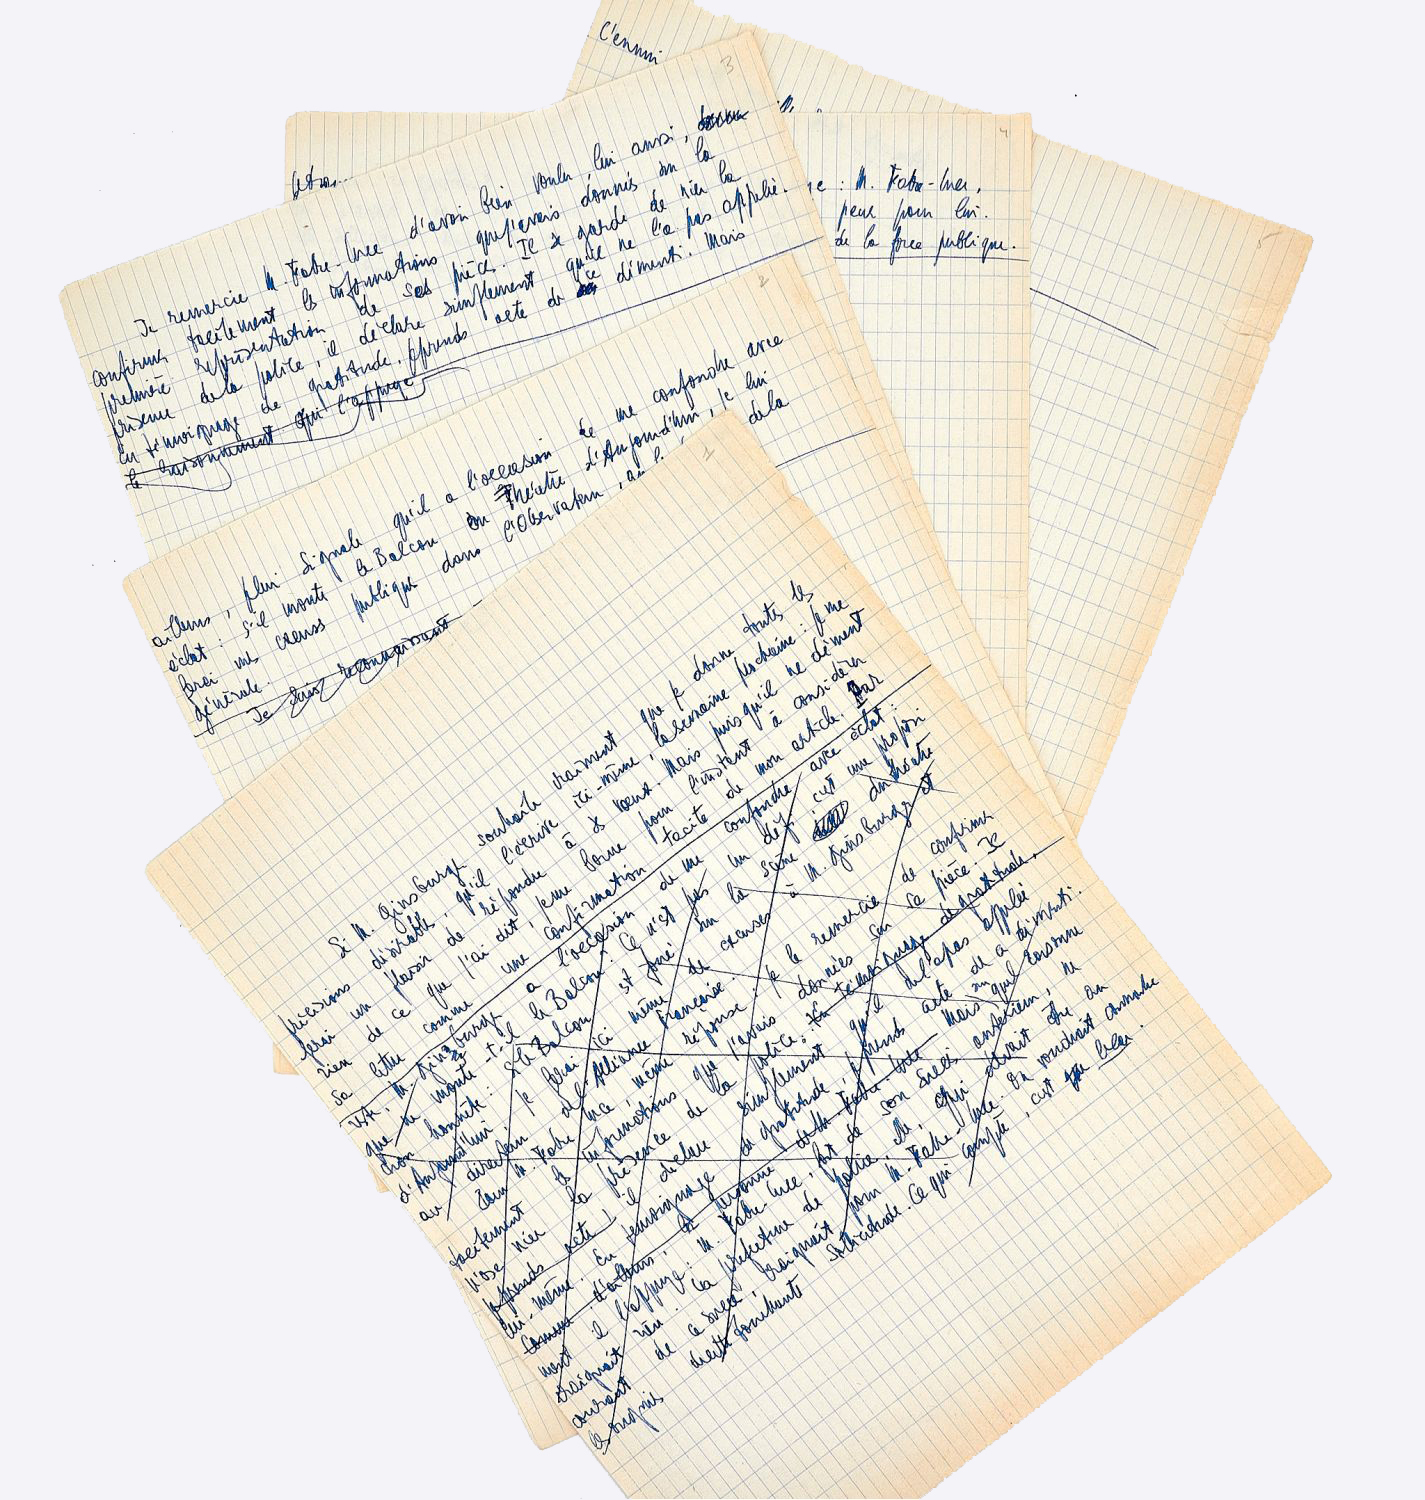 C'ennui
4
: M. Fabre-Luce,
peur pour lui.
de la force publique.
5
3
Je remercie M. Fabre-Luce d'avoir bien voulu, lui aussi,
confirmer tacitement les informations que j'avais données sur la
première représentation de ses pièces. Il se garde de nier la
présence de la police, il déclare simplement qu'il ne l'a pas appelée.
En témoignage de gratitude, je prends acte de ce démenti. Mais
le raisonnement qui l'appuye
2
ailleurs, plein signale qu'il a l'occasion de me confondre avec
éclat : s'il monte le Balcon au Théâtre d'Aujourd'hui, je lui
ferai mes excuses publique dans l'Observateur, de la
générale.
Je suis reconnaissant
1
Si M. Ginsburgh souhaite vraiment que je donne toutes les
précisions désirables, qu'il l'écrive ici-même, la semaine prochaine : je me
ferai un plaisir de répondre à ses vœux. Mais puisqu'il ne dément
rien de ce que j'ai dit, je me borne pour l'instant à considérer
sa lettre comme une confirmation tacite de mon article. Par
M. Ginsburgh a l'occasion de me confondre avec éclat :
que ne monte-t-il le Balcon ? Ce n'est pas un défi c'est une proposi
tion honnête : si le Balcon est joué sur la scène du théâtre
d'Aujourd'hui je ferai ici même des excuses à M. Ginsburgh et
au directeur de l'Alliance Française.
M. Fabre-Luce, même réponse : je le remercie de confirmer
tacitement les informations que j'avais données sur sa pièce. Il
n'ose nier la présence de la police : En témoignage de gratitude,
je prends acte il déclare simplement qu'il ne l'a pas appelée
lui-même. En témoignage de gratitude, je prends acte de ce démenti.
Comme d'ailleurs, la personne de M. Fabre-Luce Mais quel raisonne
ment il l'appuye : M. Fabre-Luce, fort de son succès antérieur, ne
craignait rien. La préfecture de police, elle, qui devait être au
courant de ce succès, craignait pour M. Fabre-Luce. On voudrait connaître
les raisons de cette touchante sollicitude. Ce qui compte, c'est